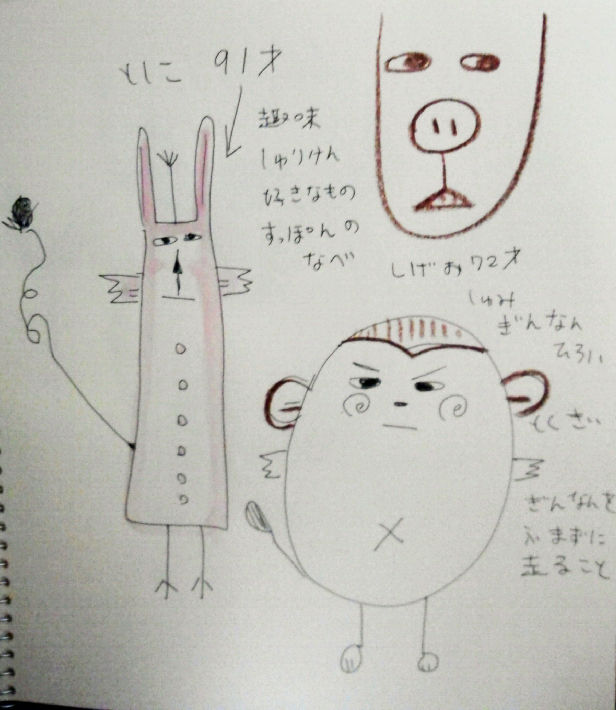 としこ 91才
趣味
しゅりけん
好きなもの
すっぽんの
なべ
しげお72才
しゅみ
ぎんなん
ひろい
とくぎ
ぎんなんを
ふまずに
走ること